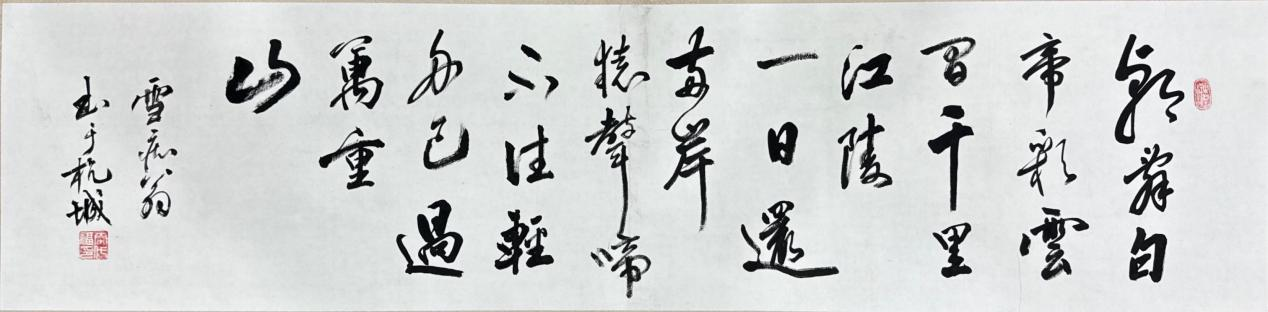 朝辞白
帝彩雲
間千里
江陵
一日還
兩岸
猿聲啼
不住輕
舟已過
萬重
山
雪痴翁
书于杭城